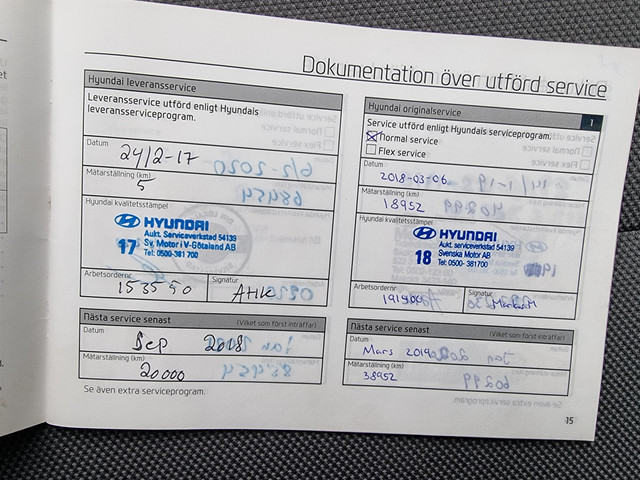 Dokumentation över utförd service
Hyundai leveransservice
Leveransservice utförd enligt Hyundais
leveransserviceprogram.
Datum
24/2-17
Mätarställning (km)
5
Hyundai kvalitetsstämpel
HYUNDAI
Aukt. Serviceverkstad 54139
17 Sv. Motor i V-Götaland AB
Tel: 0500-381 700
Arbetsordernr
153550
Signatur
AHK
Nästa service senast (Vilket som först inträffar)
Datum
Sep 2018
Mätarställning (km)
20000
Se även extra serviceprogram.
Hyundai originalservice 1
Service utförd enligt Hyundais serviceprogram.
Normal service
Flex service
Datum
2018-03-06
Mätarställning (km)
18952
Hyundai kvalitetsstämpel
HYUNDAI
Aukt. serviceverkstad 54139
18 Svenska Motor AB
Tel: 0500-381700
Arbetsordernr
Signatur
Nästa service senast (Vilket som först inträffar)
Datum
Mars 2019
Mätarställning (km)
38952
15